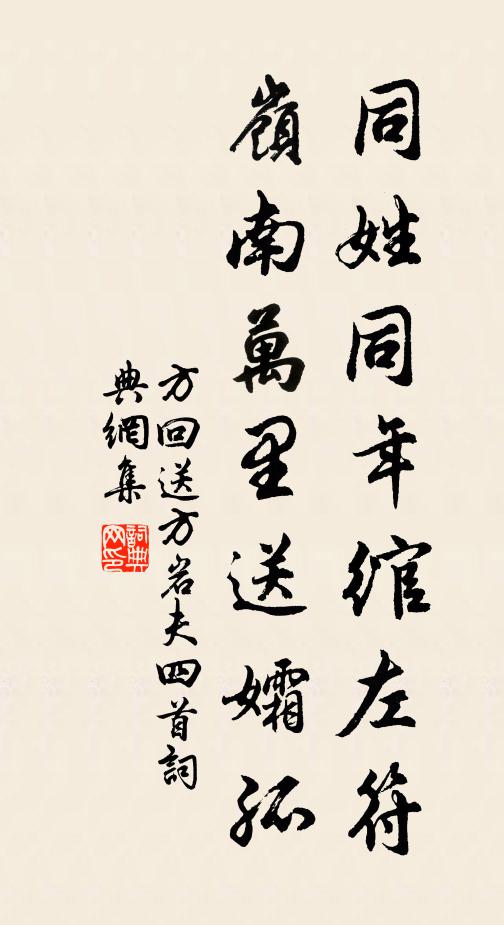 同姓同年綰左符
嶺南萬里送孀孤
方回送方岩夫四首詞
典網集
詞典網印